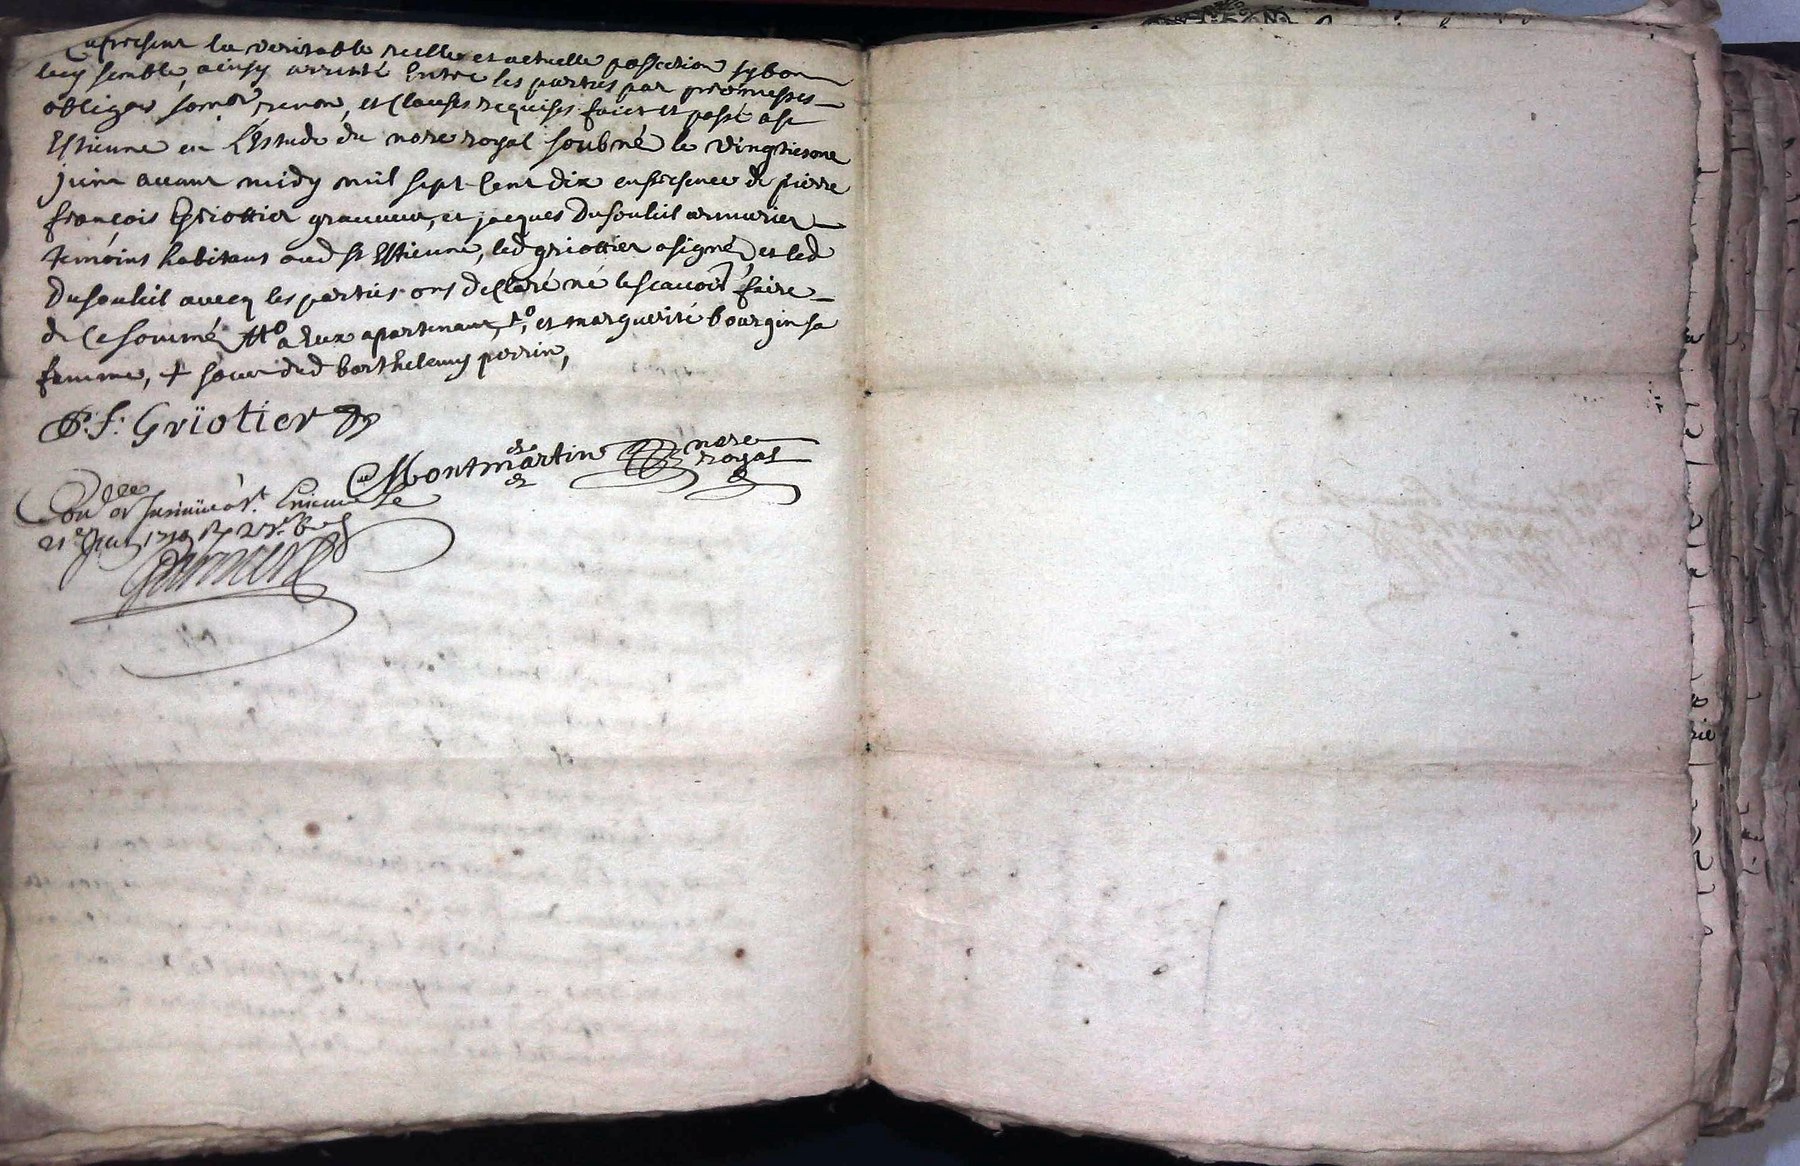 apresent la veritable reelle et actuelle possection sy bon
luy semble, ainsy arresté Entre les parties par promesses
obligaõn somõn renõn, et Clauses requises faict et passé a st
Estienne en L'Estude du nore royal soubné le vingtiesme
juin avant midy mil sept Cent dix en presence de pierre
françois Griottier graveur, et jacques Dusouliil armurier
temoins habitans aud st Estienne, led griottier a signé et led
Dusouliil avecq les parties ont declaré né le scavoir faire
de Ce sommé, a Eux apartenant, et marguerite bourgin sa
femme, + soeur dud barthelemy perrin,
P. f. Griotier
Montmartin nore
royal
Con.lle et Insinüé a st. Etienne le
21e Juin 1710